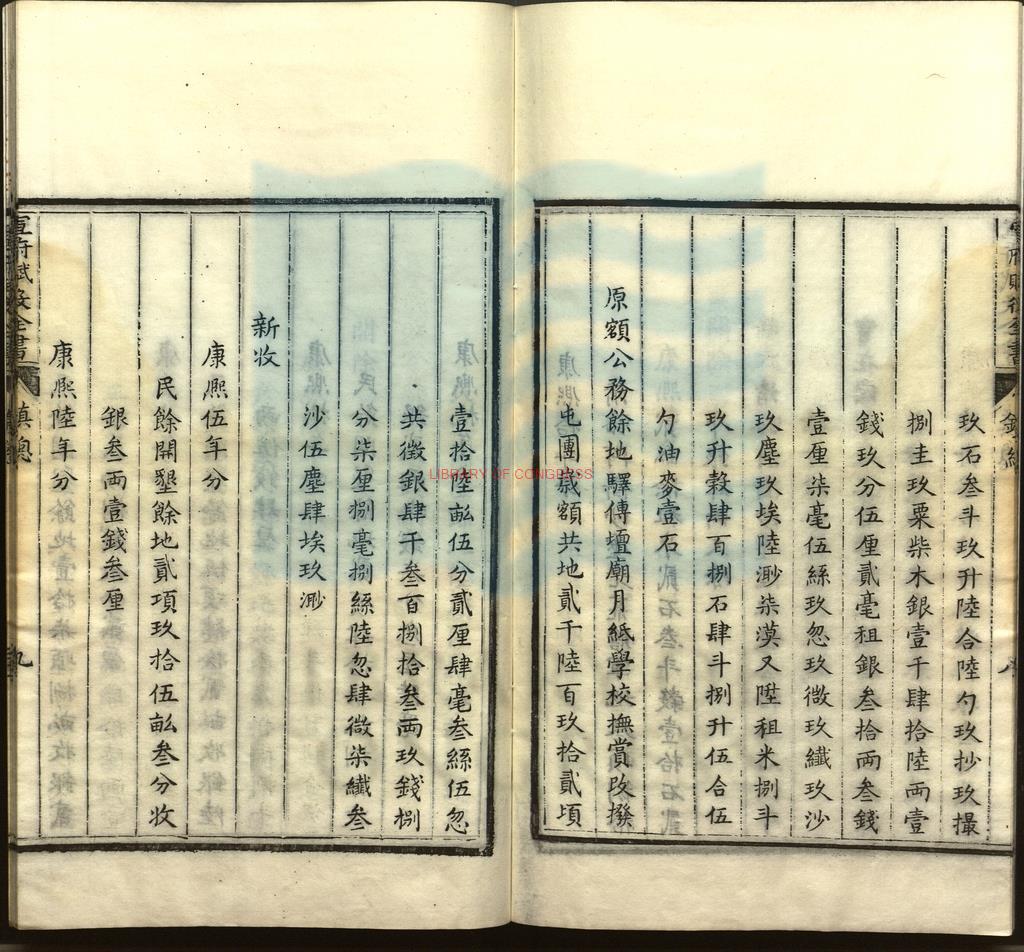 玖石叁斗玖升陸合陸勺玖抄玖撮
捌圭玖粟柴木銀壹千肆拾陸兩壹
錢玖分伍厘貳毫租銀叁拾兩叁錢
壹厘柒毫伍絲玖忽玖微玖纖玖沙
玖塵玖埃陸渺柒漠又陞租米捌斗
玖升穀肆百捌石肆斗捌升伍合伍
勺油麥壹石
原額公務餘地驛傳壇廟月紙學校撫賞改撥
屯團歲額共地貳千陸百玖拾貳頃
壹拾陸畝伍分貳厘肆毫叁絲伍忽
共徵銀肆千叁百捌拾叁兩玖錢捌
分柒厘捌毫捌絲陸忽肆微柒纖叁
沙伍塵肆埃玖渺
新收
康熙伍年分
民餘開墾餘地貳項玖拾伍畝叁分收
銀叁兩壹錢叁厘
康熙陸年分
宣府賦役全書
鎮總
九
LIBRARY OF CONGRESS